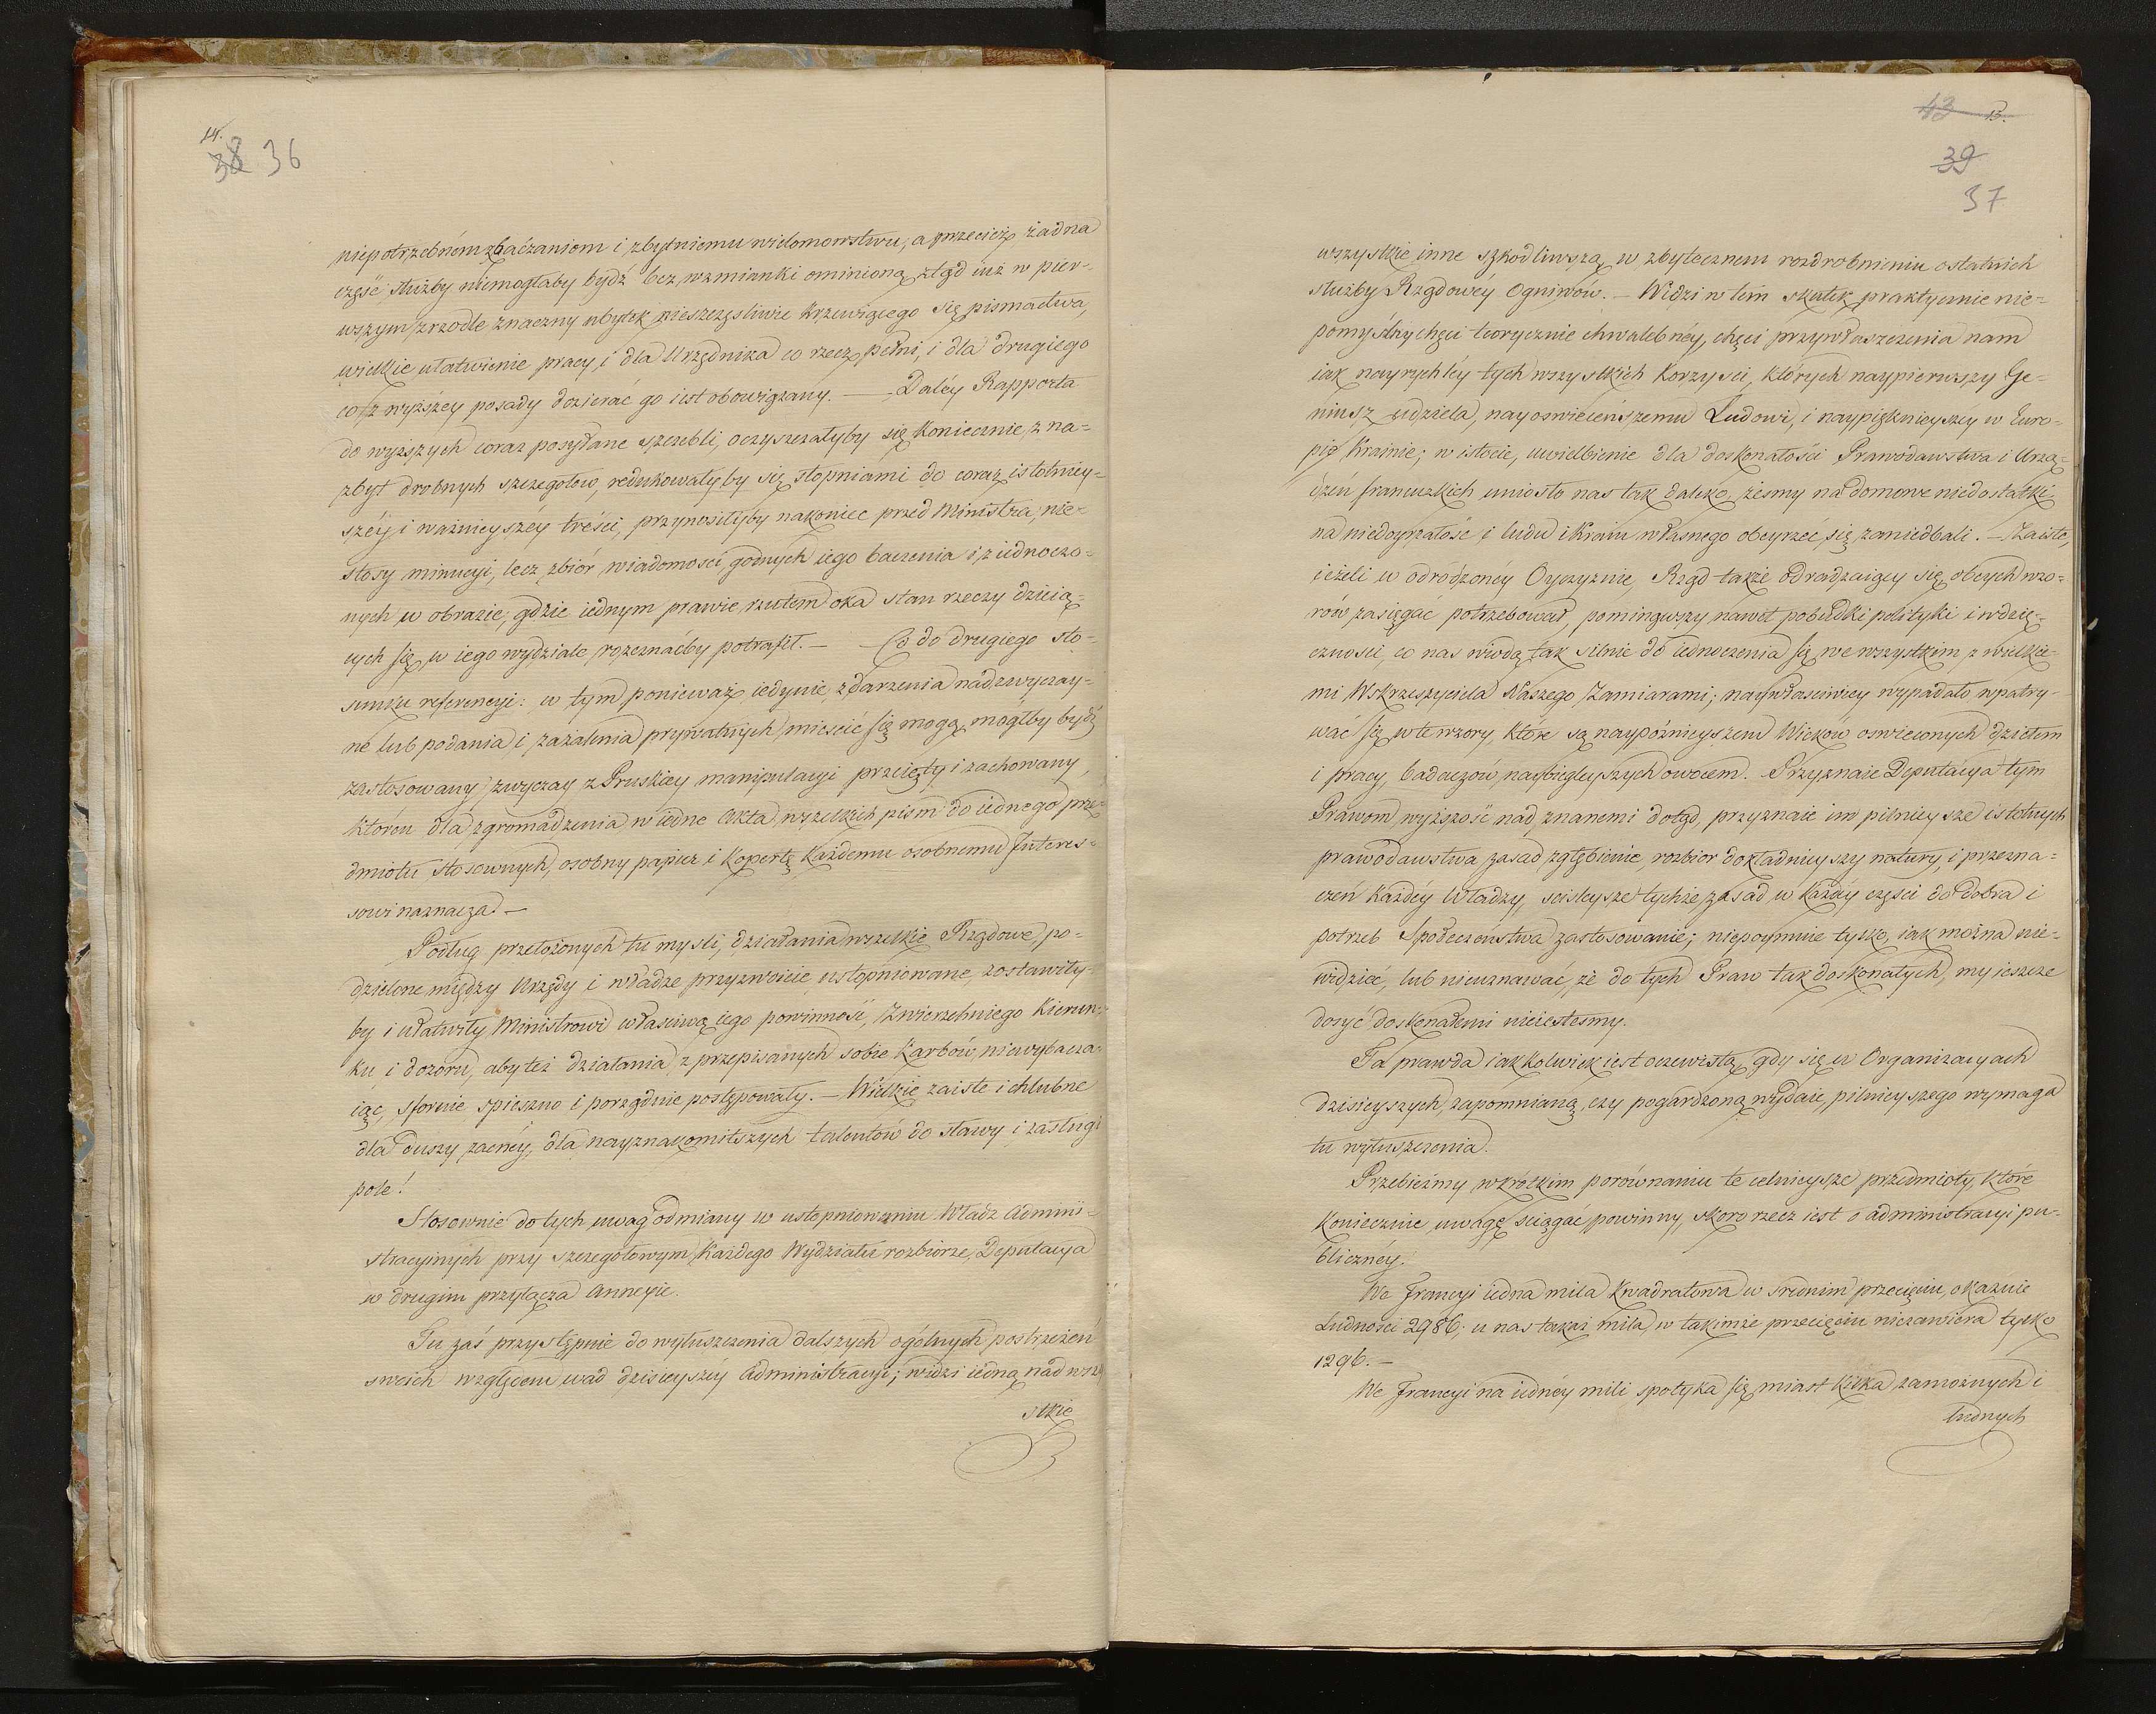 14.
38 36
niepotrzebnóm zbaczaniom i zbytniemu wielomowstwu, a przecież żadna
część służby niemogłaby bydź bez wzmianki ominioną, ztąd iuż w pier-
wszym zrzodle znaczny ubytek nieszczęśliwie krzewiącego się pismactwa,
wielkie ułatwienie pracy, i dla Urzędnika co rzecz pełni, i dla drugiego
co z wyższey posady dozierać go iest obowiązany. — Daléy Rapporta
do wyższych coraz posyłane szczebli, oczyszczałyby się koniecznie z na-
zbyt drobnych szczegołow, redukowałyby się stopniami do coraz istotniey-
széy i ważnieyszéy treści, przynosiłyby nakoniec przed Ministra, nie-
stosy minucyi, lecz zbiór wiadomosci, godnych iego baczenia i ziednoczo-
nych w obrazie, gdzie iednym prawie rzutem oka stan rzeczy dzieią-
cych się w iego wydziale rozeznaćby potrafił. — Co do drugiego sto-
sunku referencyi: w tym ponieważ iedynie zdarzenia nadzwyczay-
ne lub podania i zażalenia prywatnych mieścić się mogą, mógłby bydź
zastosowany zwyczay z Pruskiey manipulacyi przeięty i zachowany,
któren dla zgromadzenia w iedne Akta wszelkich pism do iednego prze-
dmiotu stosownych, osobny papier i kopertę każdemu osobnemu Interes-
sowi naznacza. —
Podług przełożonych tu mysli, działania wszelkie Rządowe, po-
dzielone między Urzędy i władze przyzwoicie ustopniowane, zostawiły-
by i ułatwiły Ministrowi właściwą iego powinność, Zwierzchniego Kierun-
ku, i dozoru, aby też działania z przepisanych sobie karbów niewybacza-
iąc, sfornie spieszno i porządnie postępowały. — Wielkie zaiste i chlubne
dla duszy zacnéy, dla nayznakomitszych talentów do sławy i zasługi
pole!
Stosownie do tych uwag odmiany w ustopniowaniu Władz Admini-
stracyinych przy szczegołowym każdego Wydziału rozbiorze, Deputacya
w drugim przyłącza Annexie.
Tu zaś przystępuie do wyłuszczenia dalszych ogólnych postrzeżeń
swoich względem wad dzisieyszéy Administracyi; widzi iedną nad wszy-
stkie
43 15.
39
37
wszystkie inne szkodliwszą, w zbytecznem rozdrobnieniu ostatnich
służby Rządowéy Ogniwów. — Widzi w tém skutek praktycznie nie-
pomyślny chęci teorycznie chwalebnéy, chęci przywłaszczenia nam
iak nayrychléy tych wszystkich korzysci, których naypierwszy Ge-
niusz udziela, nayoswieceńszemu Ludowi, i naypięknieyszey w Euro-
pie Krainie; w istocie, uwielbienie dla doskonałości Prawodawstwa i Urzą-
dzeń francuzkich uniosło nas tak daleko, żeśmy na domowe niedostatki,
na niedoyrzałość i ludu i Kraiu własnego obeyrzeć się zaniedbali. — Zaiste,
ieżeli w odrodzonéy Oyczyznie, Rząd także odradzaiący się obcych wzo-
rów zasięgać potrzebował, pominąwszy nawet pobudki polityki i wdzię-
cznosci, co nas wiodą tak silnie do iednoczenia się we wszystkim z wielkie-
mi Wskrzesiciela Naszego Zamiarami; naywłasciwiey wypadało wpatry-
wać się w te wzory, które są naypóżnieyszem Wieków oswieconych dziełem
i pracy badaczów naybiegleyszych owocem. Przyznaie Deputacya tym
Prawom wyższość nad znanemi dotąd, przyznaie im pilnieysze istotnych
prawodawstwa zasad zgłębienie, rozbior dokładnieyszy natury, i przezna-
czeń każdéy Władzy, scisleysze tychże zasad w każdéy części do dobra i
potrzeb Społeczeństwa zastosowanie; niepoymuie tylko, iak można nie-
widzieć, lub nieuznawać, że do tych Praw tak doskonałych, my ieszcze
dosyć doskonałemi nieiestesmy.
Ta prawda iakkolwiek iest oczewista, gdy się w Organizacyach
dzisieyszych zapomnianą, czy pogardzoną wydaie, pilnieyszego wymaga
tu wyłuszczenia.
Przebieżmy w krótkim porównaniu te celnieysze przedmioty, które
koniecznie uwagę sciągać powinny, skoro rzecz iest o administracyi pu-
blicznéy.
We Francyi iedna mila kwadratowa w srednim przecięciu okazuie
Ludności 2986; u nas takaż mila, w takimże przecięciu niezawiera tylko
1296. —
We Francyi na iednéy mili spotyka się miast kilka zamożnych i
ludnych